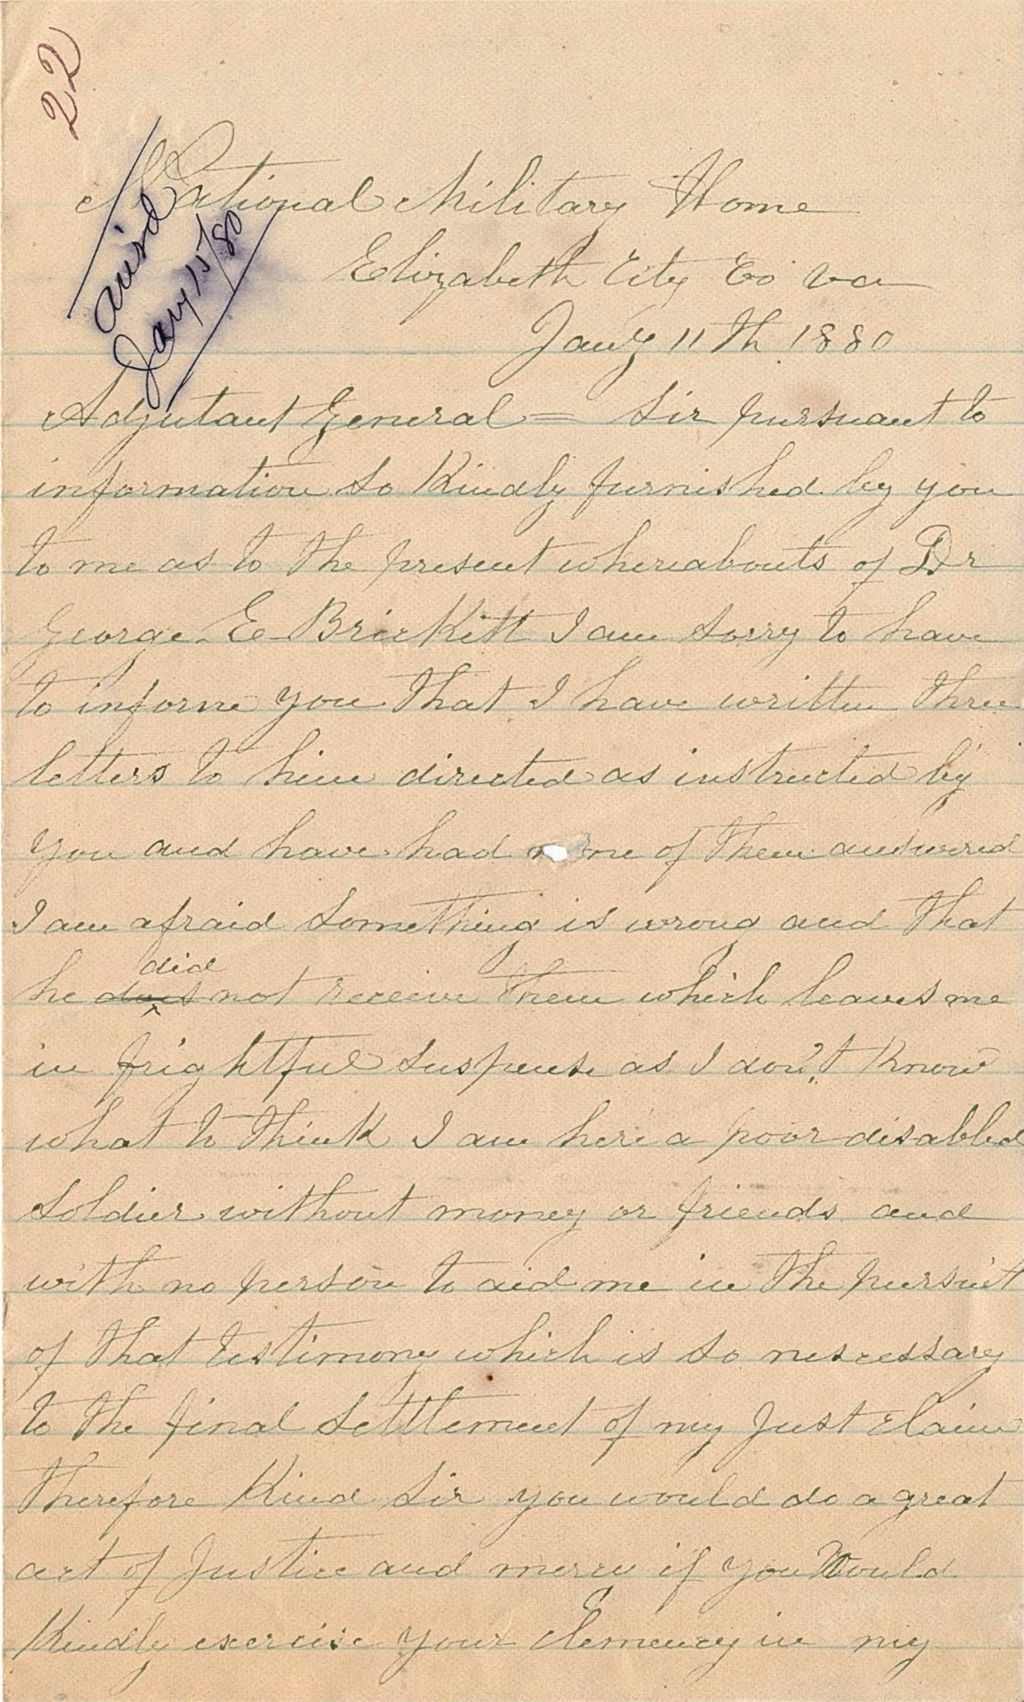 22
ans'd
Jany 15/80
National Military Home
Elizabeth City Co Va
Jany 11th 1880
Adjutant General = Sir pursuant to
information so Kindly furnished by you
to me as to the present whereabouts of Dr
George E Brickett I am sorry to have
to informe you that I have written three
letters to him directed as instructed by
you and have had none of them answered
I am afraid something is wrong and that
did
he does not receive them which leaves me
in frightful suspense as I don't Know
what to think I am here a poor disabled
Soldier without money or friends and
with no person to aid me in the pursuit
of that testimony which is so nescessary
to the final settlement of my Just Claim
therefore Kind Sir you would do a great
act of Justice and mercy if you Would
Kindly exercise your Clemency in my